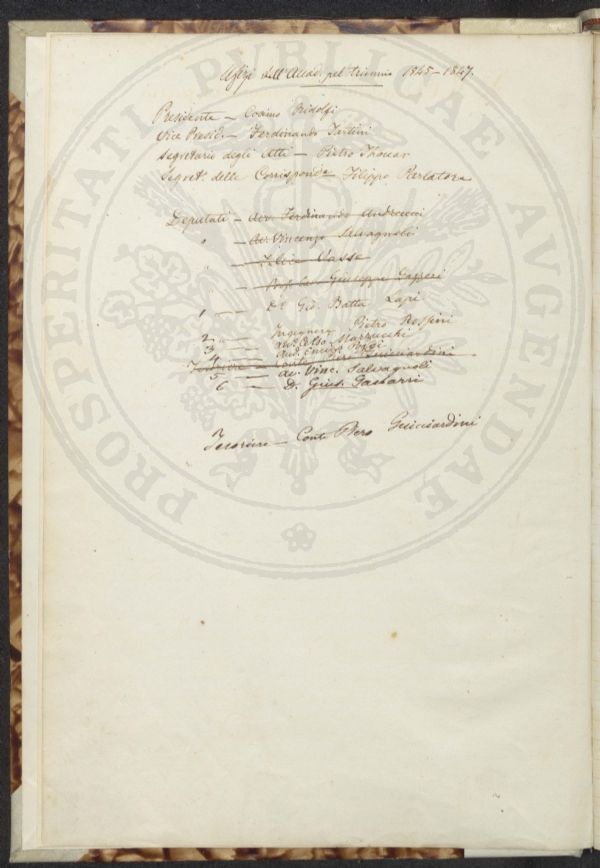 Ufizi dell'Accad. pel triennio 1845–1847.
Presidente – Cosimo Ridolfi
Vice Presid. – Ferdinando Tartini
Segretario degli Atti – Pietro Thouar
Segret. delle Corrispondze Filippo Parlatore
Deputati – Avv. Ferdinando Andreucci
" – Av. Vincenzo Salvagnoli
" – Felice Vasse
" – Prof. Cav. Giuseppe Gazzeri
1 " – Dr. Gio. Batta Lapi
2 " – Ingegnere Pietro Rossini
3 – Av. Celso Marzucchi
4 – Aud. Enrico Poggi
Tesoriere – Conte Piero Guicciardini
5 – Av. Vinc. Salvagnoli
6 – D. Gius.
Tesoriere – Conte Piero Guicciardini
PROSPERITATI PVBLICAE AVGENDAE